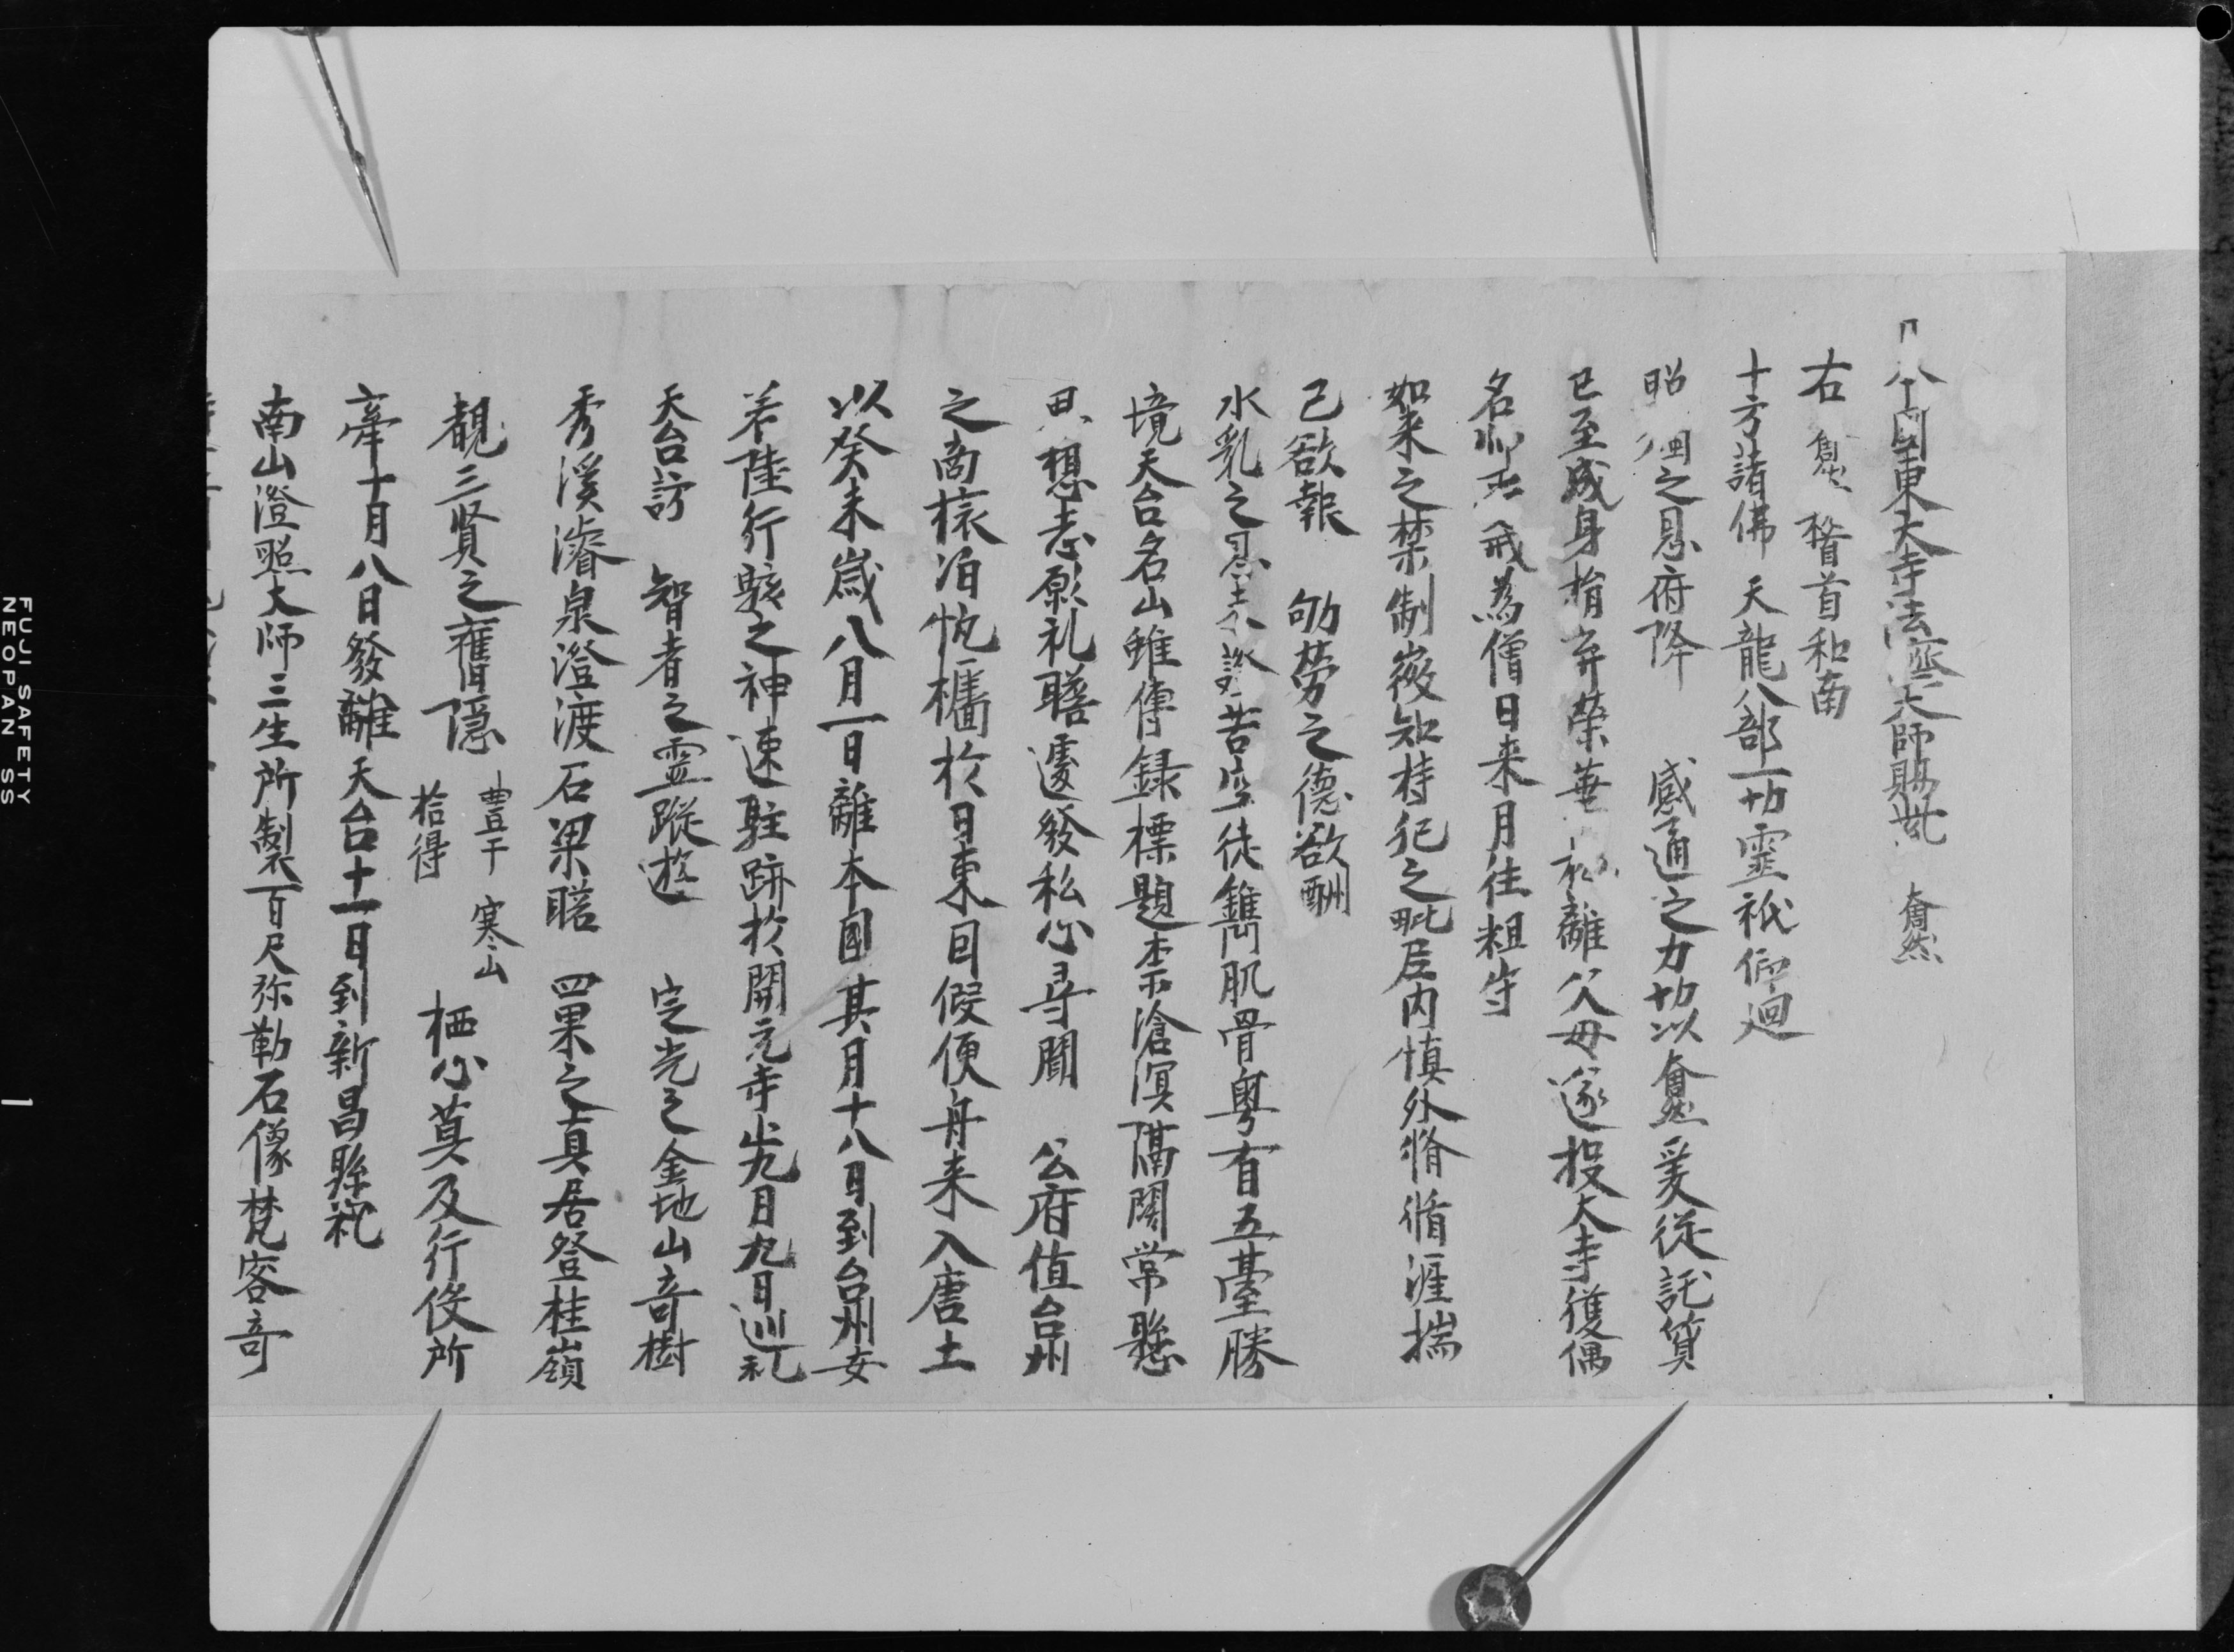 日本國東大寺法濟大師賜紫 奝然
右奝然稽首和南
十方諸佛天龍八部一切靈祇仰廻
昭〻之恩府降 感通之力切以奝然爰從託質
已至成身捐弃榮華 離父母遂投大寺獲偶
名 戒為僧日来月往粗守
如来之禁制嶶知持犯之毗尼内慎外脩循涯揣
己欲報 劬勞之德欲酬
水乳之恩 苦空徒鐫肌骨粵有五臺勝
境天台名山雖傳録標題柰滄溟隔闊常懸
思想志願礼瞻遽發私心尋聞 公府值台州
之商檥泊帆檣於日東因假便舟来入唐土
以癸未嵗八月一日離本國其月十八日到台州安
若陸行駭之神速駐跡於開元寺出九月九日巡礼
天台訪 智者之靈蹤遊 定光之金地山奇樹
秀溪濬泉澄渡石梁瞻 四果之真居登桂嶺
覩三賢之舊隱 豊干 寒山 拾得 栖心莫及行役所
牽十月八日發離天台十一日到新昌縣礼
南山澄照大師三生所製一百尺弥勒石像梵容奇
FUJI SAFETY
NEOPAN SS
1